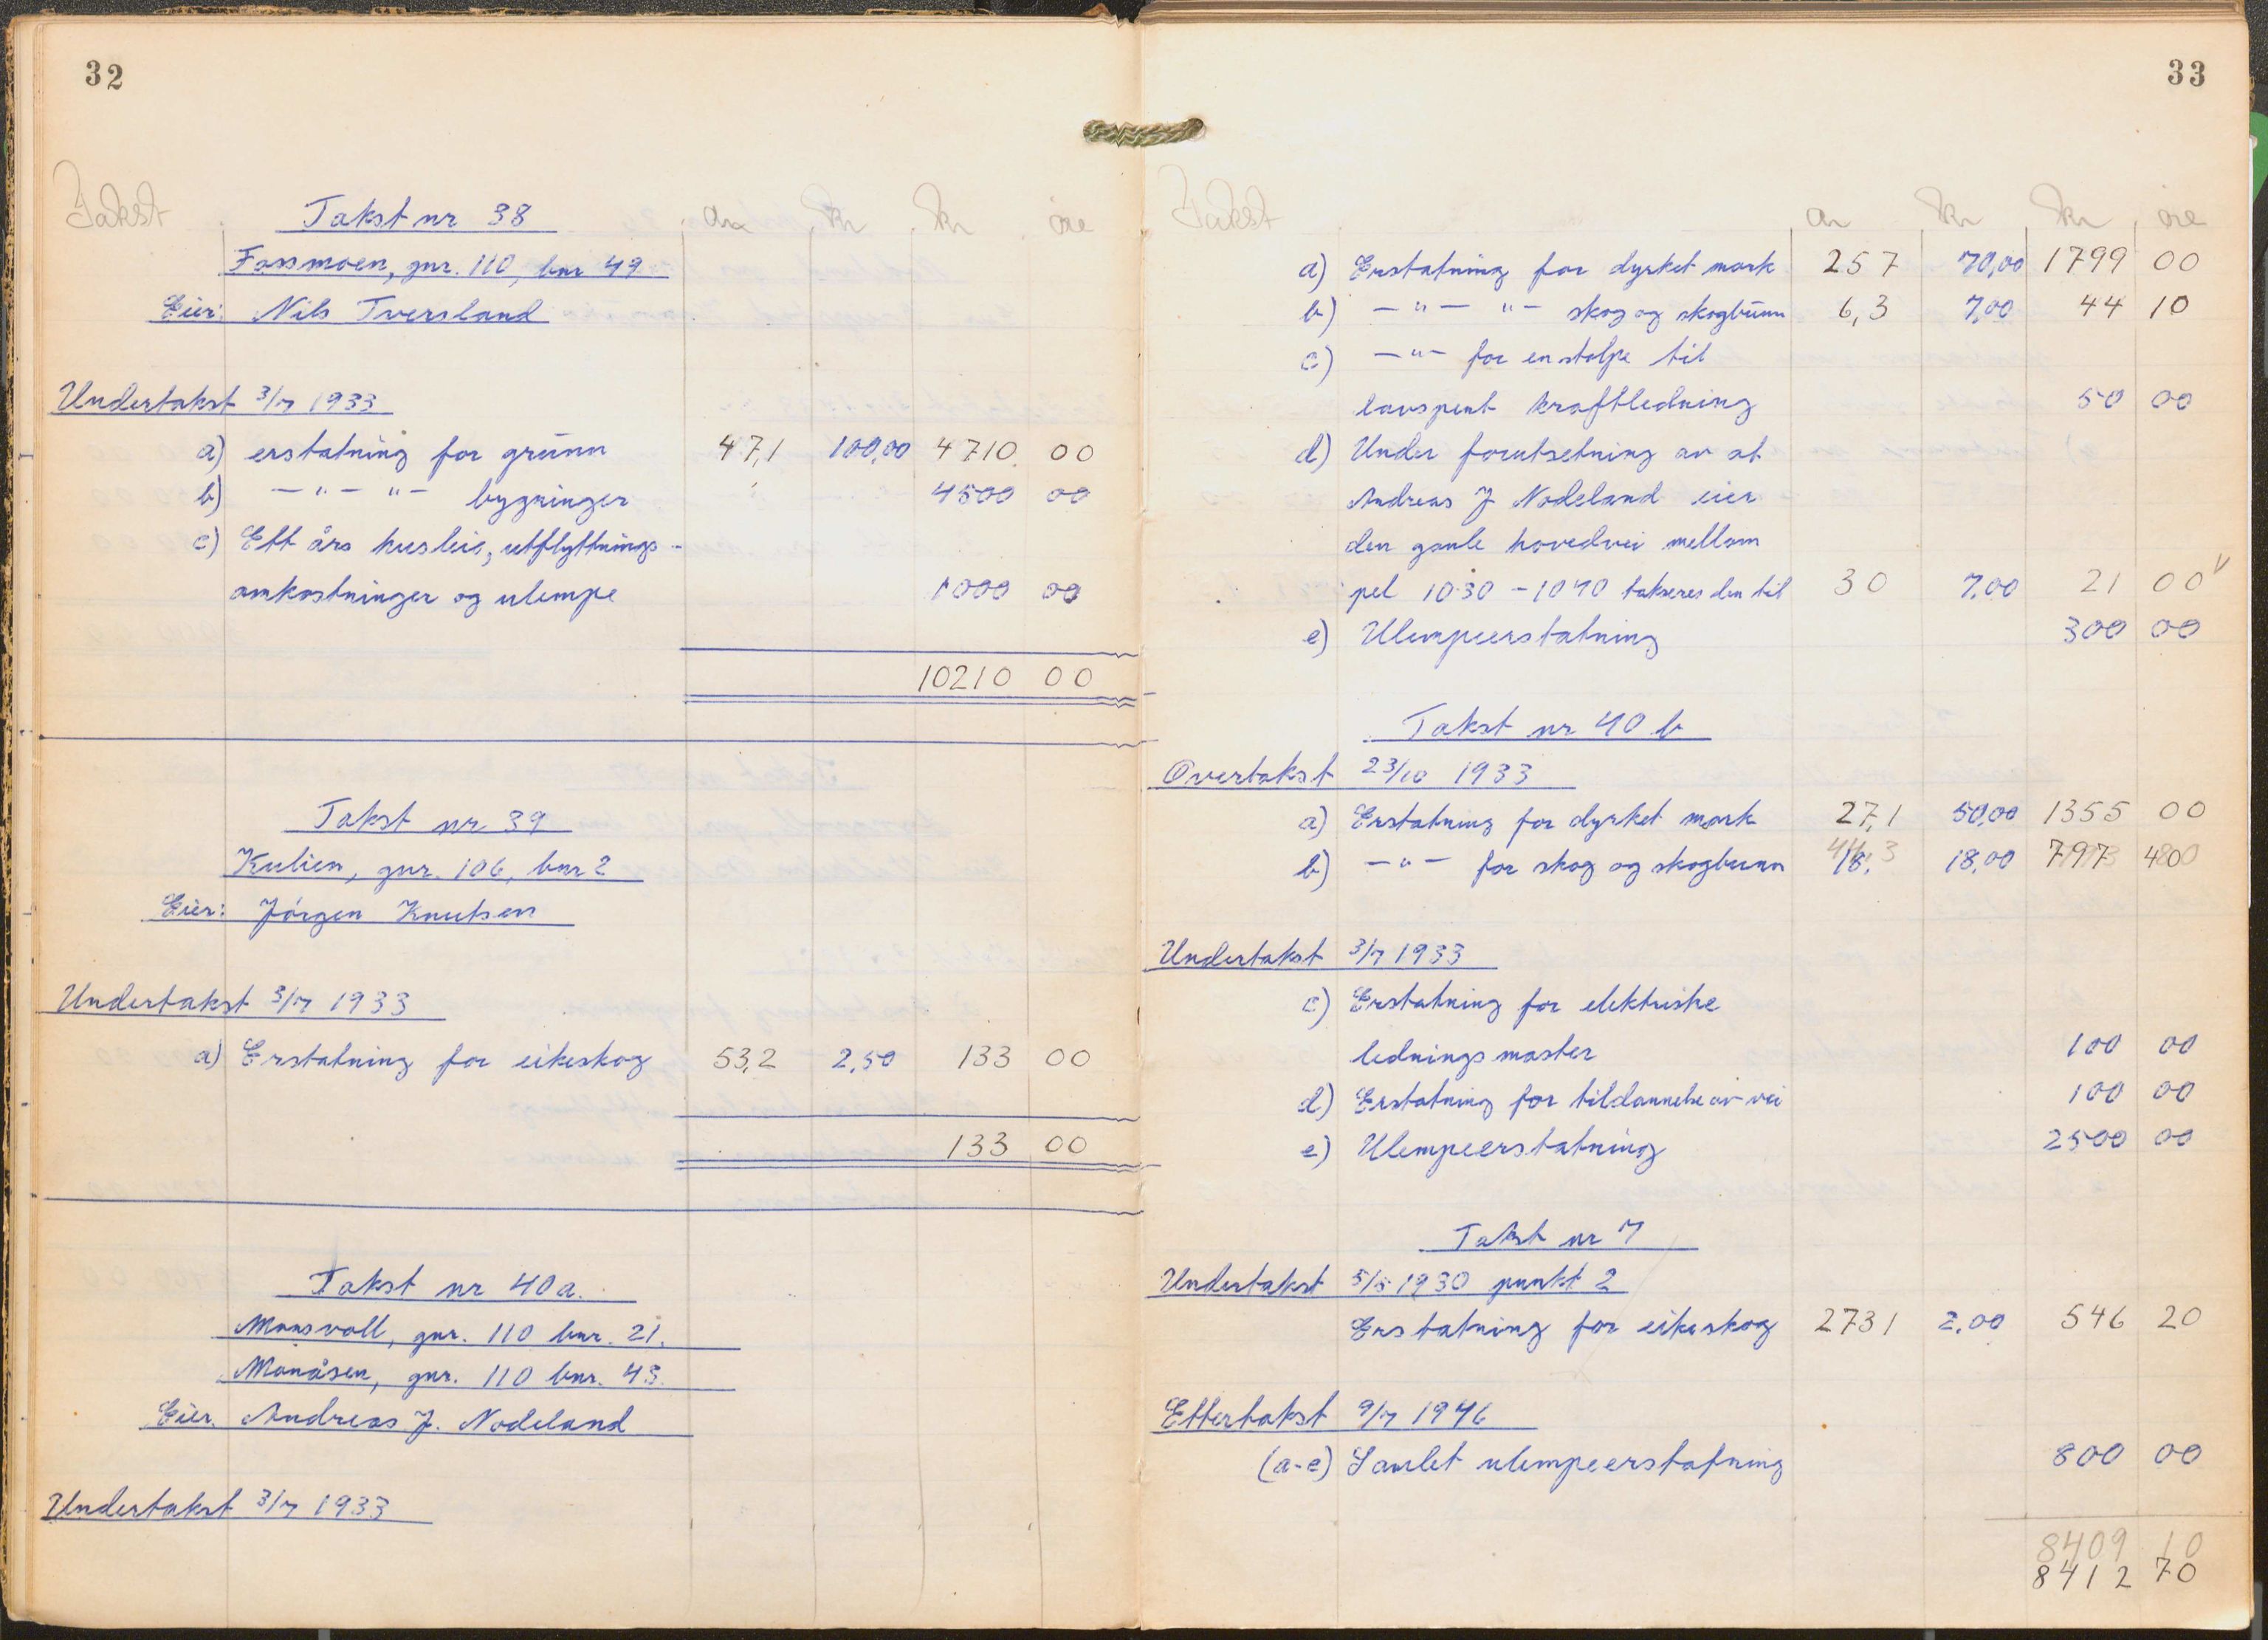 32
Takst
Takst nr 38
ar
kr
kr
øre
Fossmoen, gnr. 110, bnr 49
Eier: Nils Tversland
Undertakst 3/7 1933
a) erstatning for grunn 47,1 100,00 4710 00
b) — " — " — bygninger 4500 00
c) Ett års husleie, utflyttnings-
omkostninger og ulempe 1000 00
10210 00
Takst nr 39
Kulien, gnr. 106, bnr 2
Eier: Jörgen Knutsen
Undertakst 3/7 1933
a) Erstatning for eikeskog 53,2 2,50 133 00
133 00
Takst nr 40 a.
Monsvoll, gnr. 110 bnr. 21.
Monåsen, gnr. 110 bnr. 43.
Eier. Andreas J. Nodeland
Undertakst 3/7 1933
33
Takst
ar
kr
kr
øre
a) Erstatning for dyrket mark 257 70,00 1799 00
b) — " — " — skog og skogbunn 6,3 7,00 44 10
c) — " — for en stolpe til
lavspent kraftledning 50 00
d) Under forutsetning av at
Andreas J Nodeland eier
den gamle hovedvei mellom
pel 1030 - 1040 takseres den til 30 7,00 21 00
e) Ulempeerstatning 300 00
Takst nr 40 b
Overtakst 23/10 1933
a) Erstatning for dyrket mark 27,1 50,00 1355 00
b) — " — for skog og skogbunn 44,3 18,00 797 40
Undertakst 3/7 1933
c) Erstatning for elektriske
ledningsmaster 100 00
d) Erstatning for tildannelse av vei 100 00
e) Ulempeerstatning 2500 00
Takst nr 7
Undertakst 5/5 1930 punkt 2
Erstatning for eikeskog 2731 2,00 546 20
Ettertakst 9/7 1946
(a-e) Samlet ulempeerstatning 800 00
8409 10
8412 70